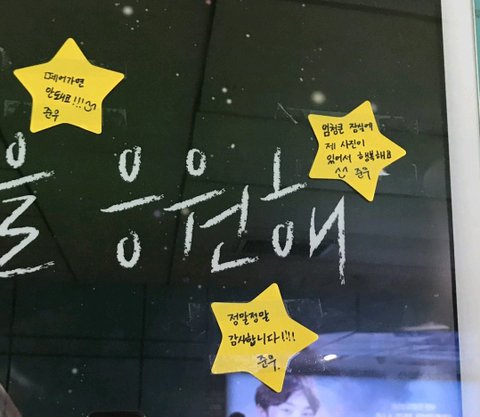 떼어가면
안돼요!!!
준우
엄청큰 잠실에
제 사진이
있어서 행복해요
준우
을 응원해
정말정말
감사합니다!!!!
준우